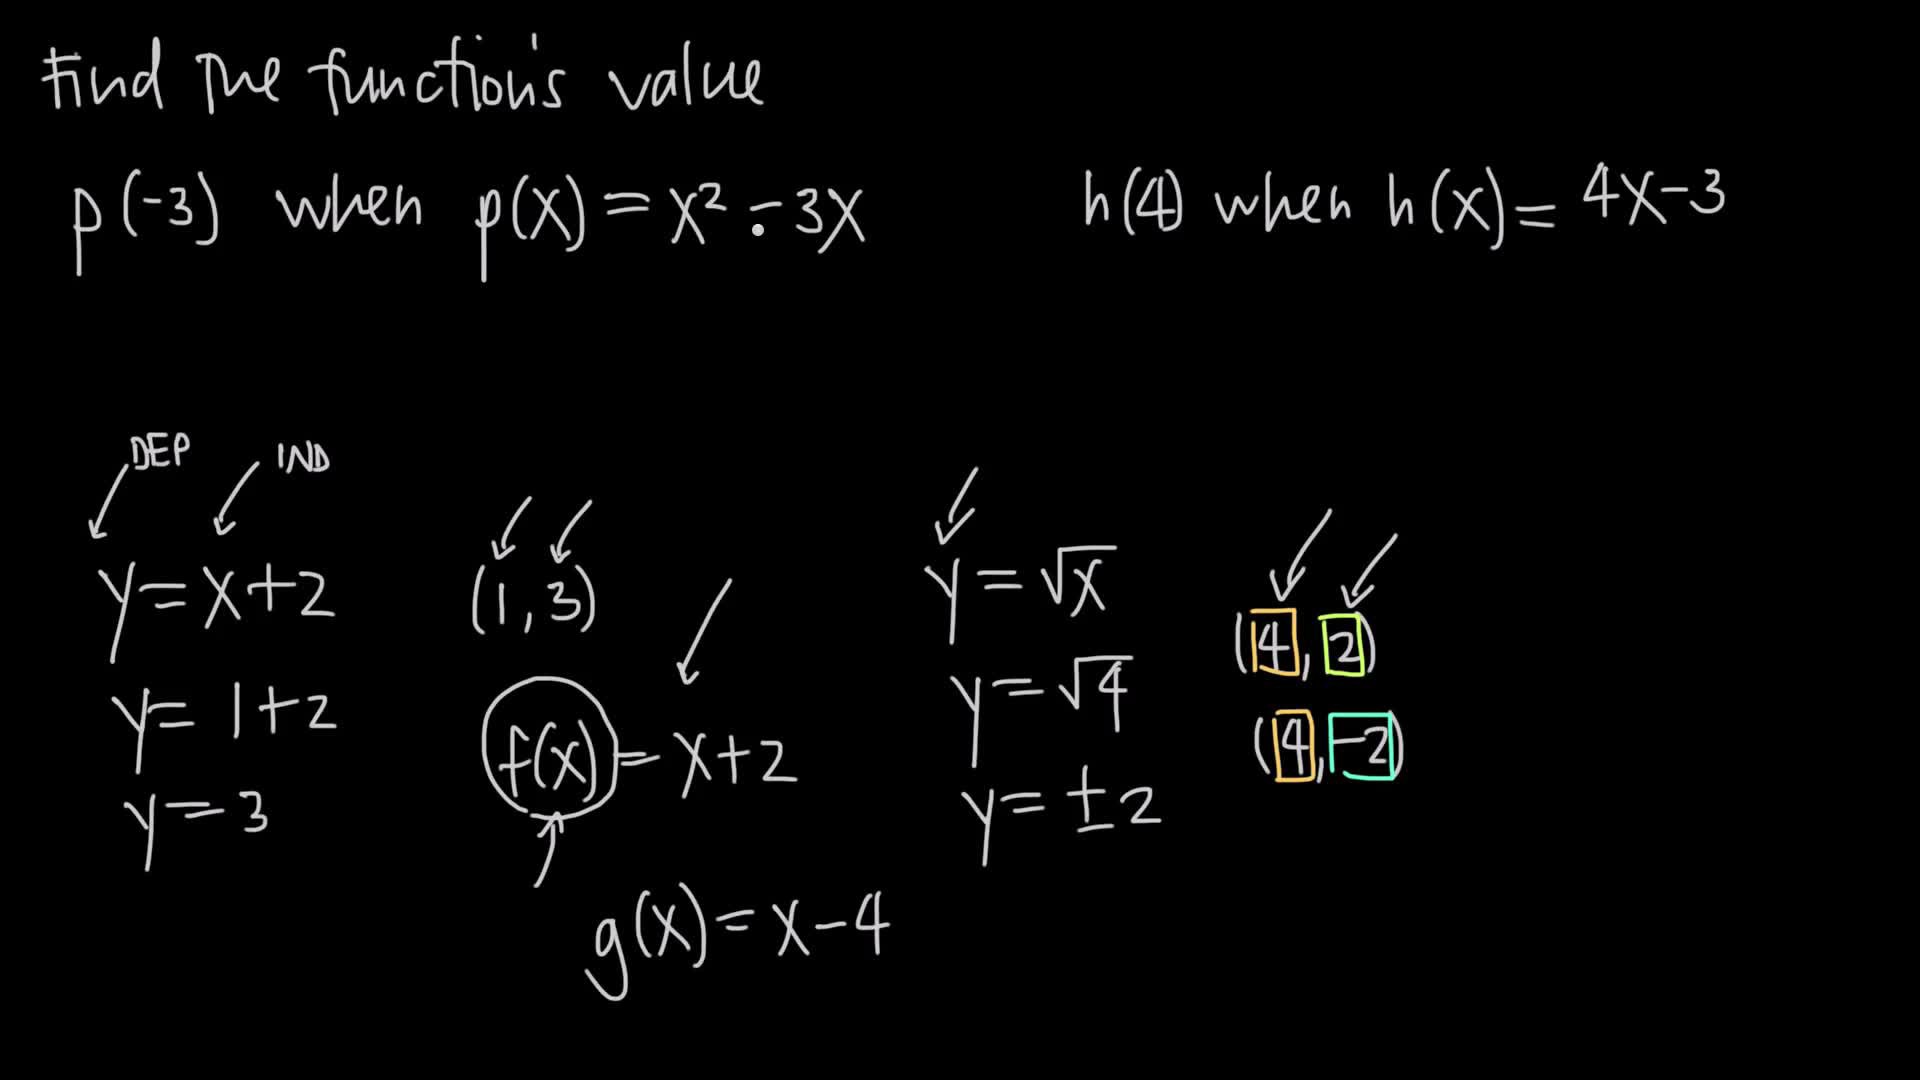 Find The function's value
p(-3) when p(x) = x² - 3x
h(4) when h(x) = 4x-3
DEP IND
y = x+2
y = 1+2
y = 3
(1, 3)
f(x) = x+2
g(x) = x-4
y = √x
y = √4
y = ±2
(4, 2)
(4, -2)